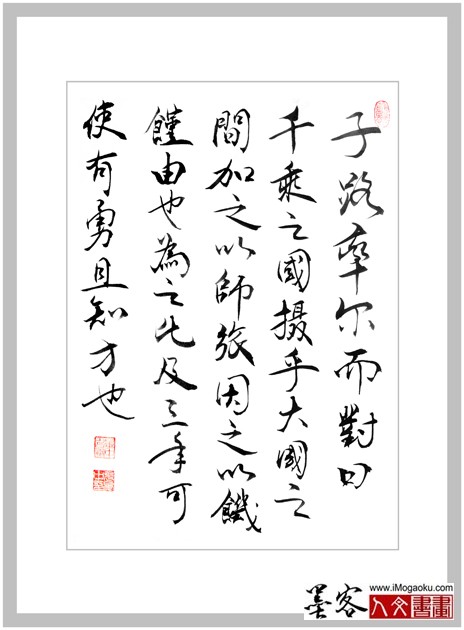 子路率尔而對曰
千乘之國摄乎大國之
間加之以師旅因之以饑
饉由也為之比及三年可
使有勇且知方也
www.iMogaoku.com
墨客人文書畫